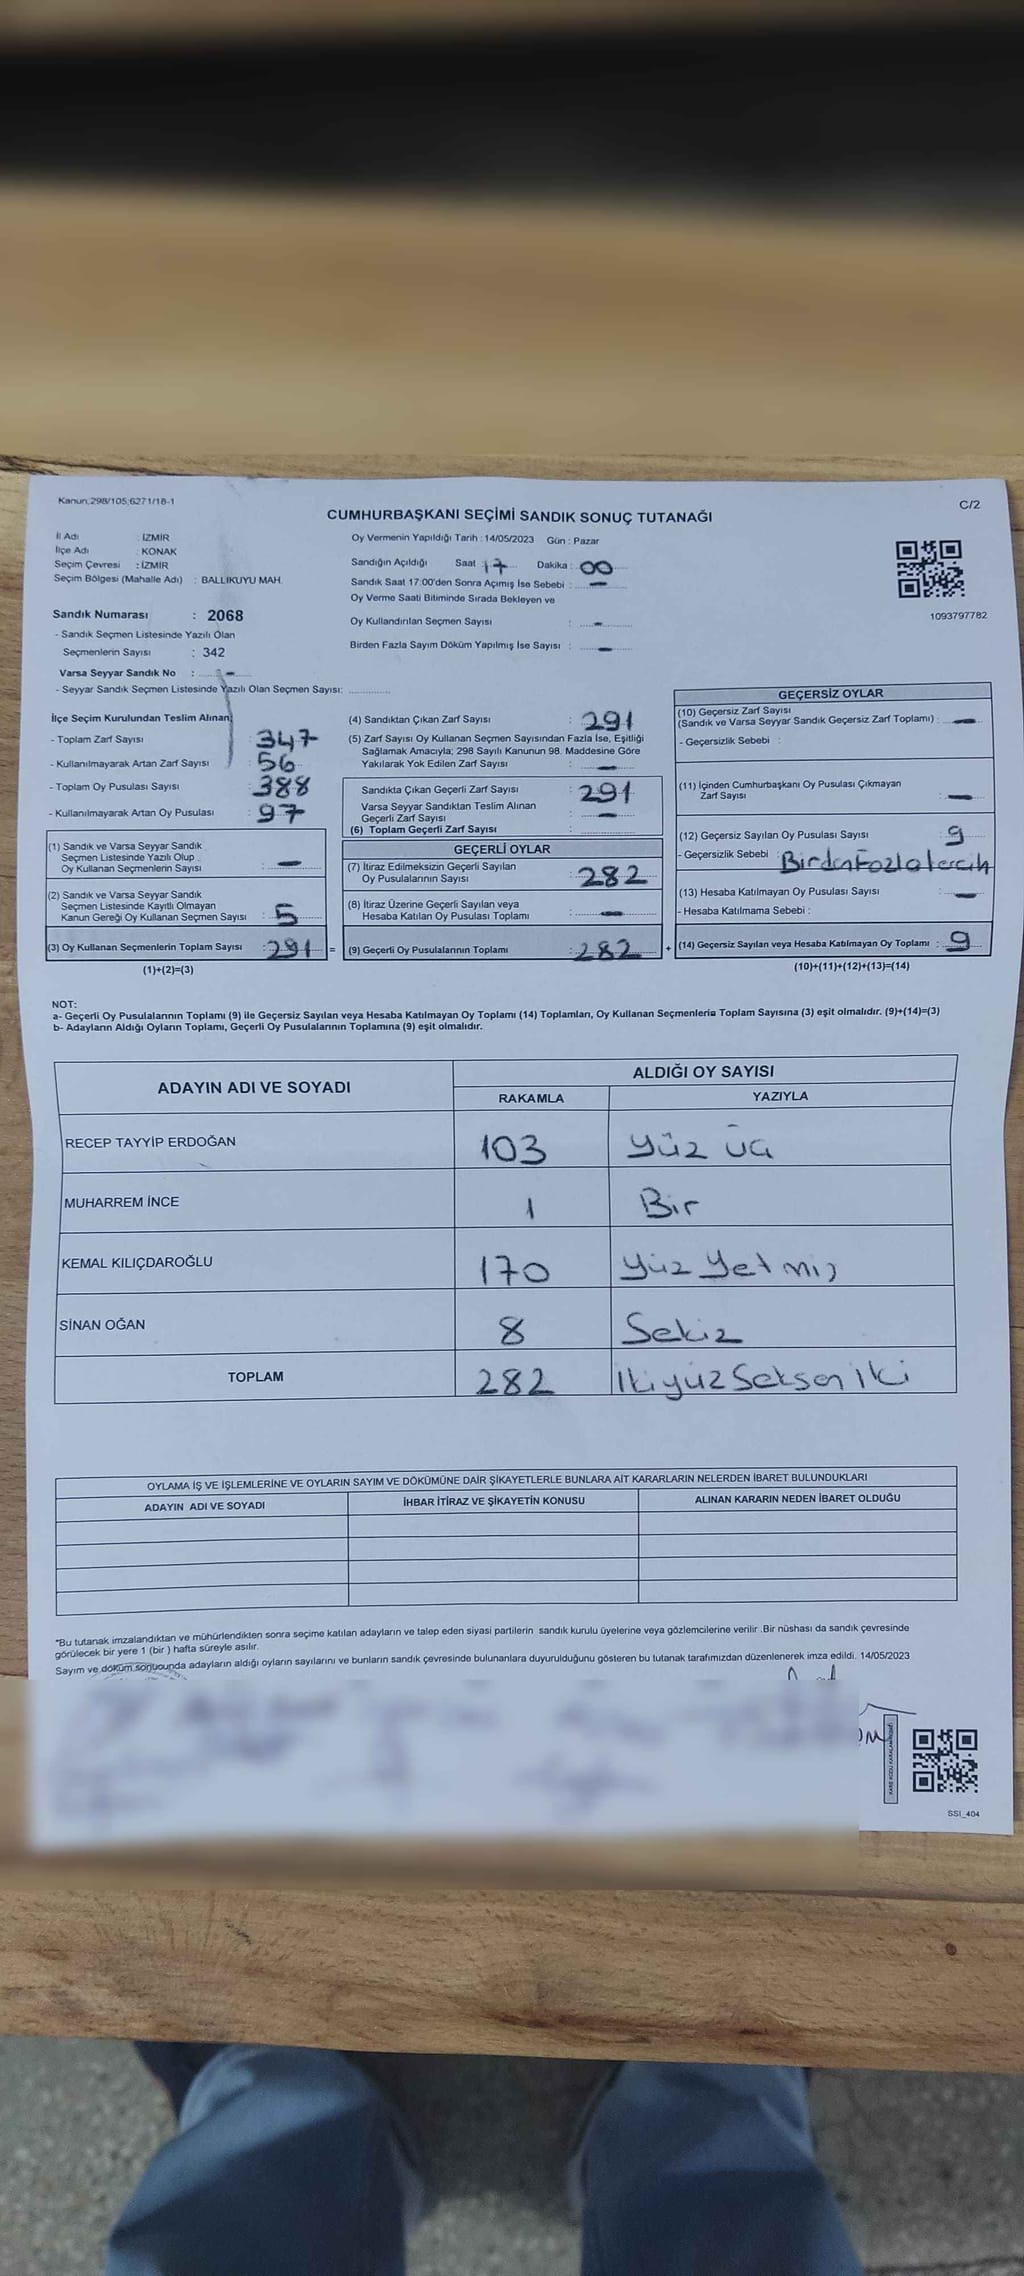 Kanun;298/105;6271/18-1
C/2
CUMHURBAŞKANI SEÇİMİ SANDIK SONUÇ TUTANAĞI
İl Adı : İZMİR
İlçe Adı : KONAK
Seçim Çevresi : İZMİR
Seçim Bölgesi (Mahalle Adı) : BALLIKUYU MAH.
Sandık Numarası : 2068
- Sandık Seçmen Listesinde Yazılı Olan
Seçmenlerin Sayısı : 342
Varsa Seyyar Sandık No : -
- Seyyar Sandık Seçmen Listesinde Yazılı Olan Seçmen Sayısı: ..............
Oy Vermenin Yapıldığı Tarih : 14/05/2023 Gün : Pazar
Sandığın Açıldığı Saat : 17 Dakika : 00
Sandık Saat 17:00'den Sonra Açımış İse Sebebi : -
Oy Verme Saati Bitiminde Sırada Bekleyen ve
Oy Kullandırılan Seçmen Sayısı : -
Birden Fazla Sayım Döküm Yapılmış İse Sayısı : -
1093797782
İlçe Seçim Kurulundan Teslim Alınan;
- Toplam Zarf Sayısı : 347
- Kullanılmayarak Artan Zarf Sayısı : 56
- Toplam Oy Pusulası Sayısı : 388
- Kullanılmayarak Artan Oy Pusulası : 97
(1) Sandık ve Varsa Seyyar Sandık
Seçmen Listesinde Yazılı Olup
Oy Kullanan Seçmenlerin Sayısı : -
(2) Sandık ve Varsa Seyyar Sandık
Seçmen Listesinde Kayıtlı Olmayan
Kanun Gereği Oy Kullanan Seçmen Sayısı : 5
(3) Oy Kullanan Seçmenlerin Toplam Sayısı : 291 =
(1)+(2)=(3)
(4) Sandıktan Çıkan Zarf Sayısı : 291
(5) Zarf Sayısı Oy Kullanan Seçmen Sayısından Fazla İse, Eşitliği
Sağlamak Amacıyla; 298 Sayılı Kanunun 98. Maddesine Göre
Yakılarak Yok Edilen Zarf Sayısı : -
Sandıkta Çıkan Geçerli Zarf Sayısı : 291
Varsa Seyyar Sandıktan Teslim Alınan
Geçerli Zarf Sayısı : -
(6) Toplam Geçerli Zarf Sayısı : ..............
GEÇERLİ OYLAR
(7) İtiraz Edilmeksizin Geçerli Sayılan
Oy Pusulalarının Sayısı : 282
(8) İtiraz Üzerine Geçerli Sayılan veya
Hesaba Katılan Oy Pusulası Toplamı : -
(9) Geçerli Oy Pusulalarının Toplamı : 282 +
GEÇERSİZ OYLAR
(10) Geçersiz Zarf Sayısı
(Sandık ve Varsa Seyyar Sandık Geçersiz Zarf Toplamı) : -
- Geçersizlik Sebebi :
(11) İçinden Cumhurbaşkanı Oy Pusulası Çıkmayan
Zarf Sayısı : -
(12) Geçersiz Sayılan Oy Pusulası Sayısı : 9
- Geçersizlik Sebebi : Birden Fazla tercih
(13) Hesaba Katılmayan Oy Pusulası Sayısı : -
- Hesaba Katılmama Sebebi :
(14) Geçersiz Sayılan veya Hesaba Katılmayan Oy Toplamı : 9
(10)+(11)+(12)+(13)=(14)
NOT:
a- Geçerli Oy Pusulalarının Toplamı (9) ile Geçersiz Sayılan veya Hesaba Katılmayan Oy Toplamı (14) Toplamları, Oy Kullanan Seçmenlerin Toplam Sayısına (3) eşit olmalıdır. (9)+(14)=(3)
b- Adayların Aldığı Oyların Toplamı, Geçerli Oy Pusulalarının Toplamına (9) eşit olmalıdır.
ADAYIN ADI VE SOYADI
ALDIĞI OY SAYISI
RAKAMLA YAZIYLA
RECEP TAYYİP ERDOĞAN 103 Yüz Üç
MUHARREM İNCE 1 Bir
KEMAL KILIÇDAROĞLU 170 Yüz Yetmiş
SİNAN OĞAN 8 Sekiz
TOPLAM 282 İkiyüz Seksen İki
OYLAMA İŞ VE İŞLEMLERİNE VE OYLARIN SAYIM VE DÖKÜMÜNE DAİR ŞİKAYETLERLE BUNLARA AİT KARARLARIN NELERDEN İBARET BULUNDUKLARI
ADAYIN ADI VE SOYADI İHBAR İTİRAZ VE ŞİKAYETİN KONUSU ALINAN KARARIN NEDEN İBARET OLDUĞU
*Bu tutanak imzalandıktan ve mühürlendikten sonra seçime katılan adayların ve talep eden siyasi partilerin sandık kurulu üyelerine veya gözlemcilerine verilir .Bir nüshası da sandık çevresinde
görülecek bir yere 1 (bir ) hafta süreyle asılır.
Sayım ve döküm sonucunda adayların aldığı oyların sayılarını ve bunların sandık çevresinde bulunanlara duyurulduğunu gösteren bu tutanak tarafımızdan düzenlenerek imza edildi. 14/05/2023
SSI_404